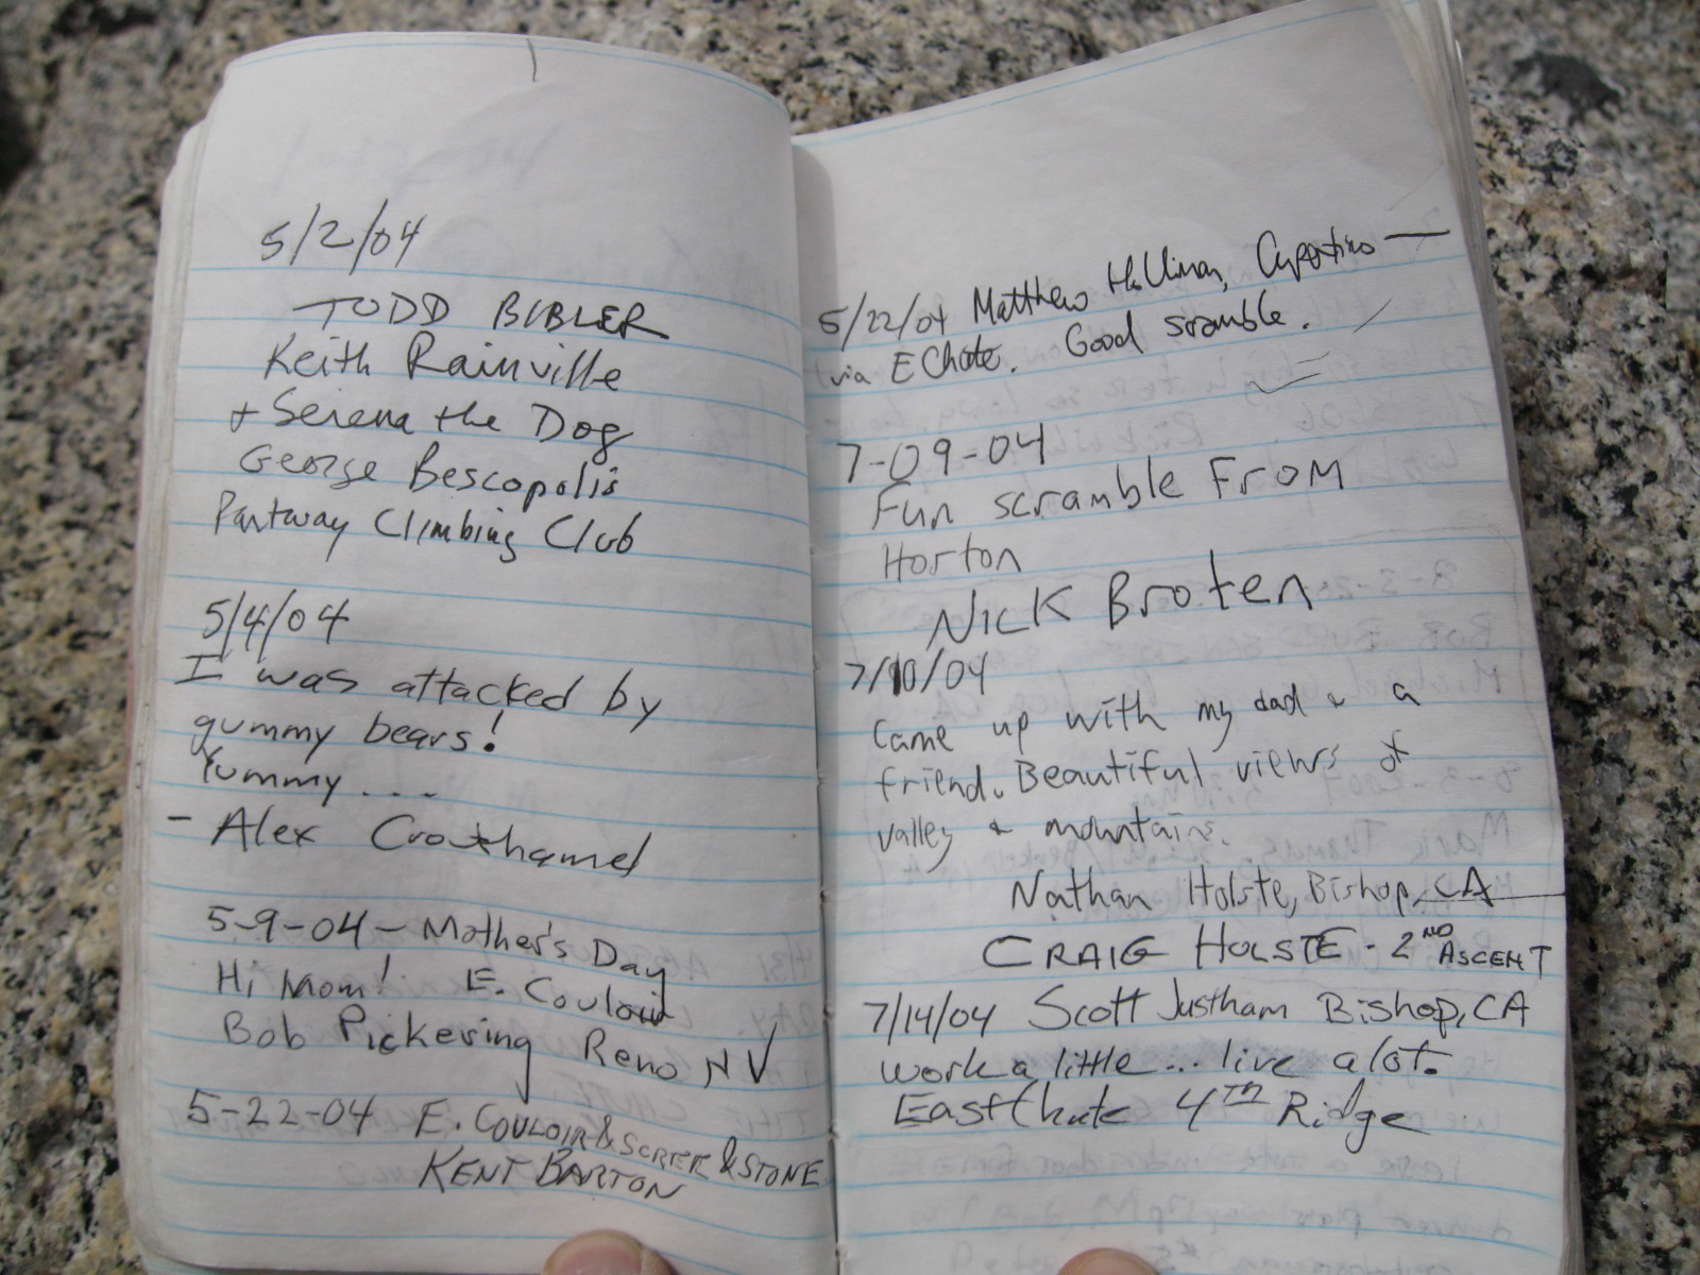 5/2/04
TODD BIBLER
Keith Rainville
+ Serena the Dog
George Bescopolis
Partway Climbing Club
5/4/04
I was attacked by
gummy bears!
Yummy...
- Alex Crowthamel
5-9-04 - Mother's Day
Hi Mom! E. Couloir
Bob Pickering Reno NV
5-22-04 E. COULOIR & SCREE & STONE
KENT BARTON
5/22/04 Matthew Holliman, Cupertino —
via E Chute. Good scramble.
7-09-04
Fun scramble From
Horton
Nick Broten
7/10/04
Came up with my dad & a
friend. Beautiful views of
valley & mountains.
Nathan Holste, Bishop, CA
CRAIG HOLSTE - 2ND ASCENT
7/14/04 Scott Justham Bishop, CA
work a little... live alot.
East Chute 4TH Ridge